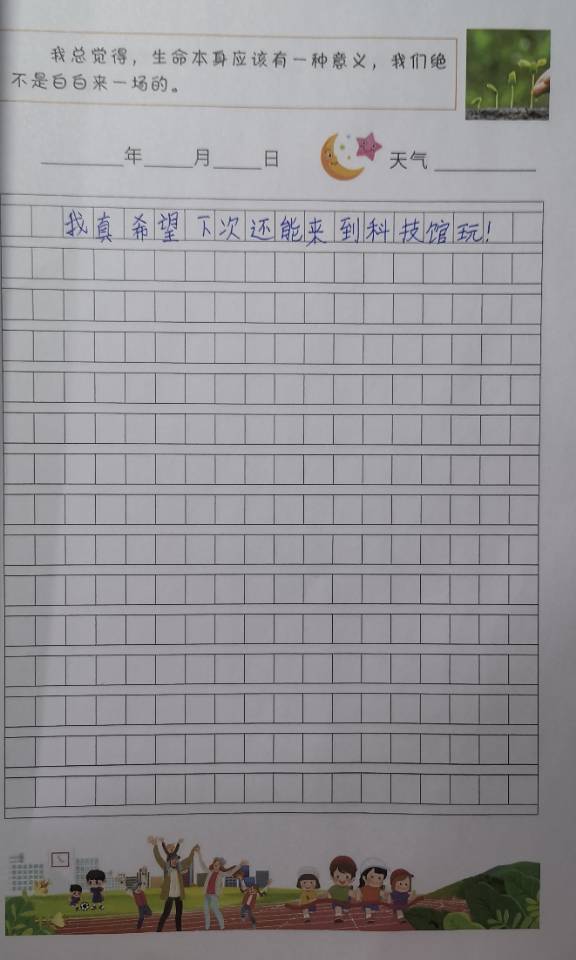 我总觉得，生命本身应该有一种意义，我们绝
不是白白来一场的。
年 月 日 天气
我真希望下次还能来到科技馆玩！